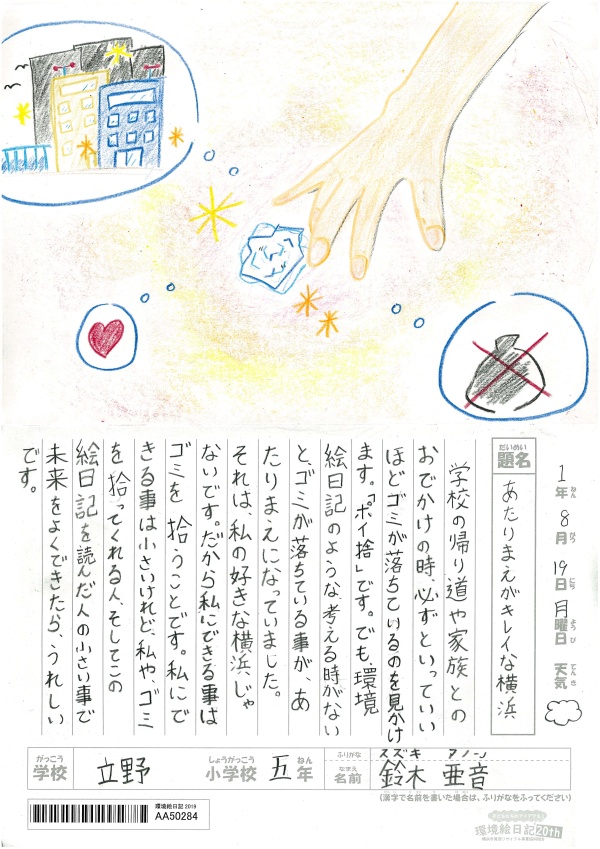 1年 8月 19日 月曜日 天気
ねん がつ にち ようび てんき
だいめい
題名 あたりまえがキレイな横浜
学校の帰り道や家族との
おでかけの時、必ずといっていい
ほどゴミが落ちているのを見かけ
ます。「ポイ捨」です。でも、環境
絵日記のような、考える時がない
と、ゴミが落ちている事が、あ
たりまえになっていました。
それは、私の好きな横浜、じゃ
ないです。だから私にできる事は
ゴミを拾うことです。私にで
きる事は小さいけれど、私や、ゴミ
を拾ってくれる人、そしてこの
絵日記を読んだ人の小さい事で
未来をよくできたら、うれしい
です。
がっこう しょうがっこう ねん ふりがな スズキ アノン
学校 立野 小学校 五年 なまえ 名前 鈴木 亜音
(漢字で名前を書いた場合は、ふりがなをふってください)
環境絵日記2019
AA50284
環境絵日記20th